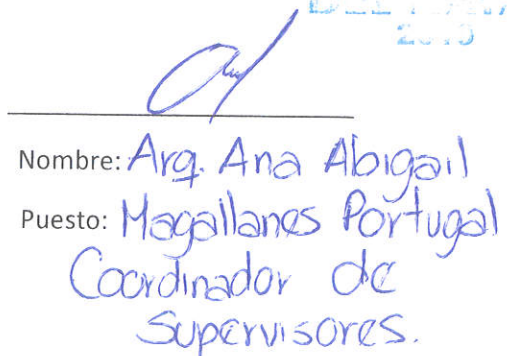 Nombre: Arq. Ana Abigail
Puesto: Magallanes Portugal
Coordinador de
Supervisores.